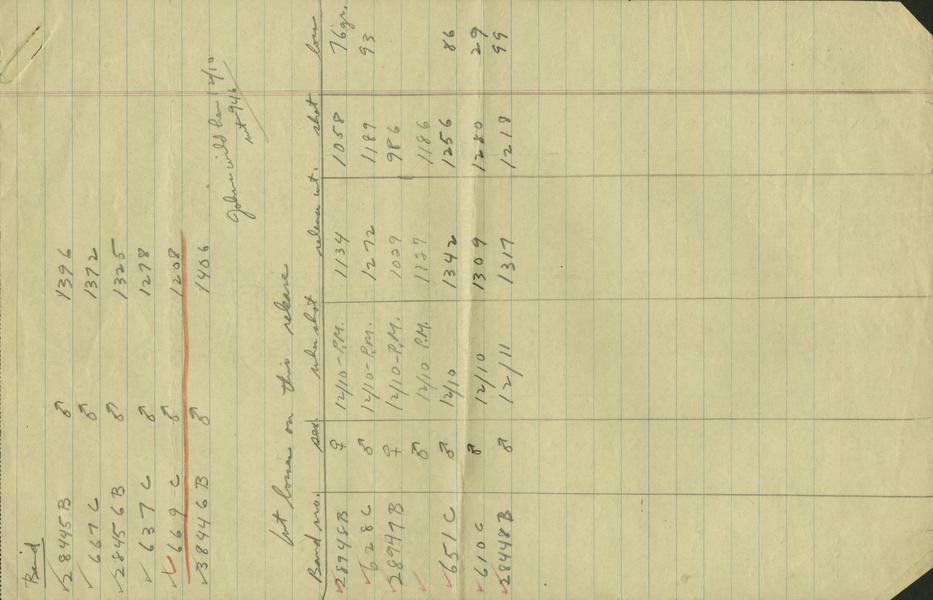 Band
✓28445B ♂ 1396
✓ 667 C ♂ 1372
✓28456B ♂ 1325
✓ 637 C ♂ 1278
✓ 669 C ♂ 1208
✓38446B ♂ 1406
12/10
wt 946
Wt losses on this release
Band no. sex. when shot release wt. shot loss
✓28948B ♀ 12/10-P.M. 1134 1058 76gr.
✓ 628C ♂ 12/10-P.M. 1272 1189 93
✓28947B ♀ 12/10-P.M. 1029 986
✓ ♂ 12/10 P.M. 1127 1186
✓651C ♂ 12/10 1342 1256 86
✓610C ♂ 12/10 1309 1280 29
✓28448B ♂ 12/11 1317 1218 99